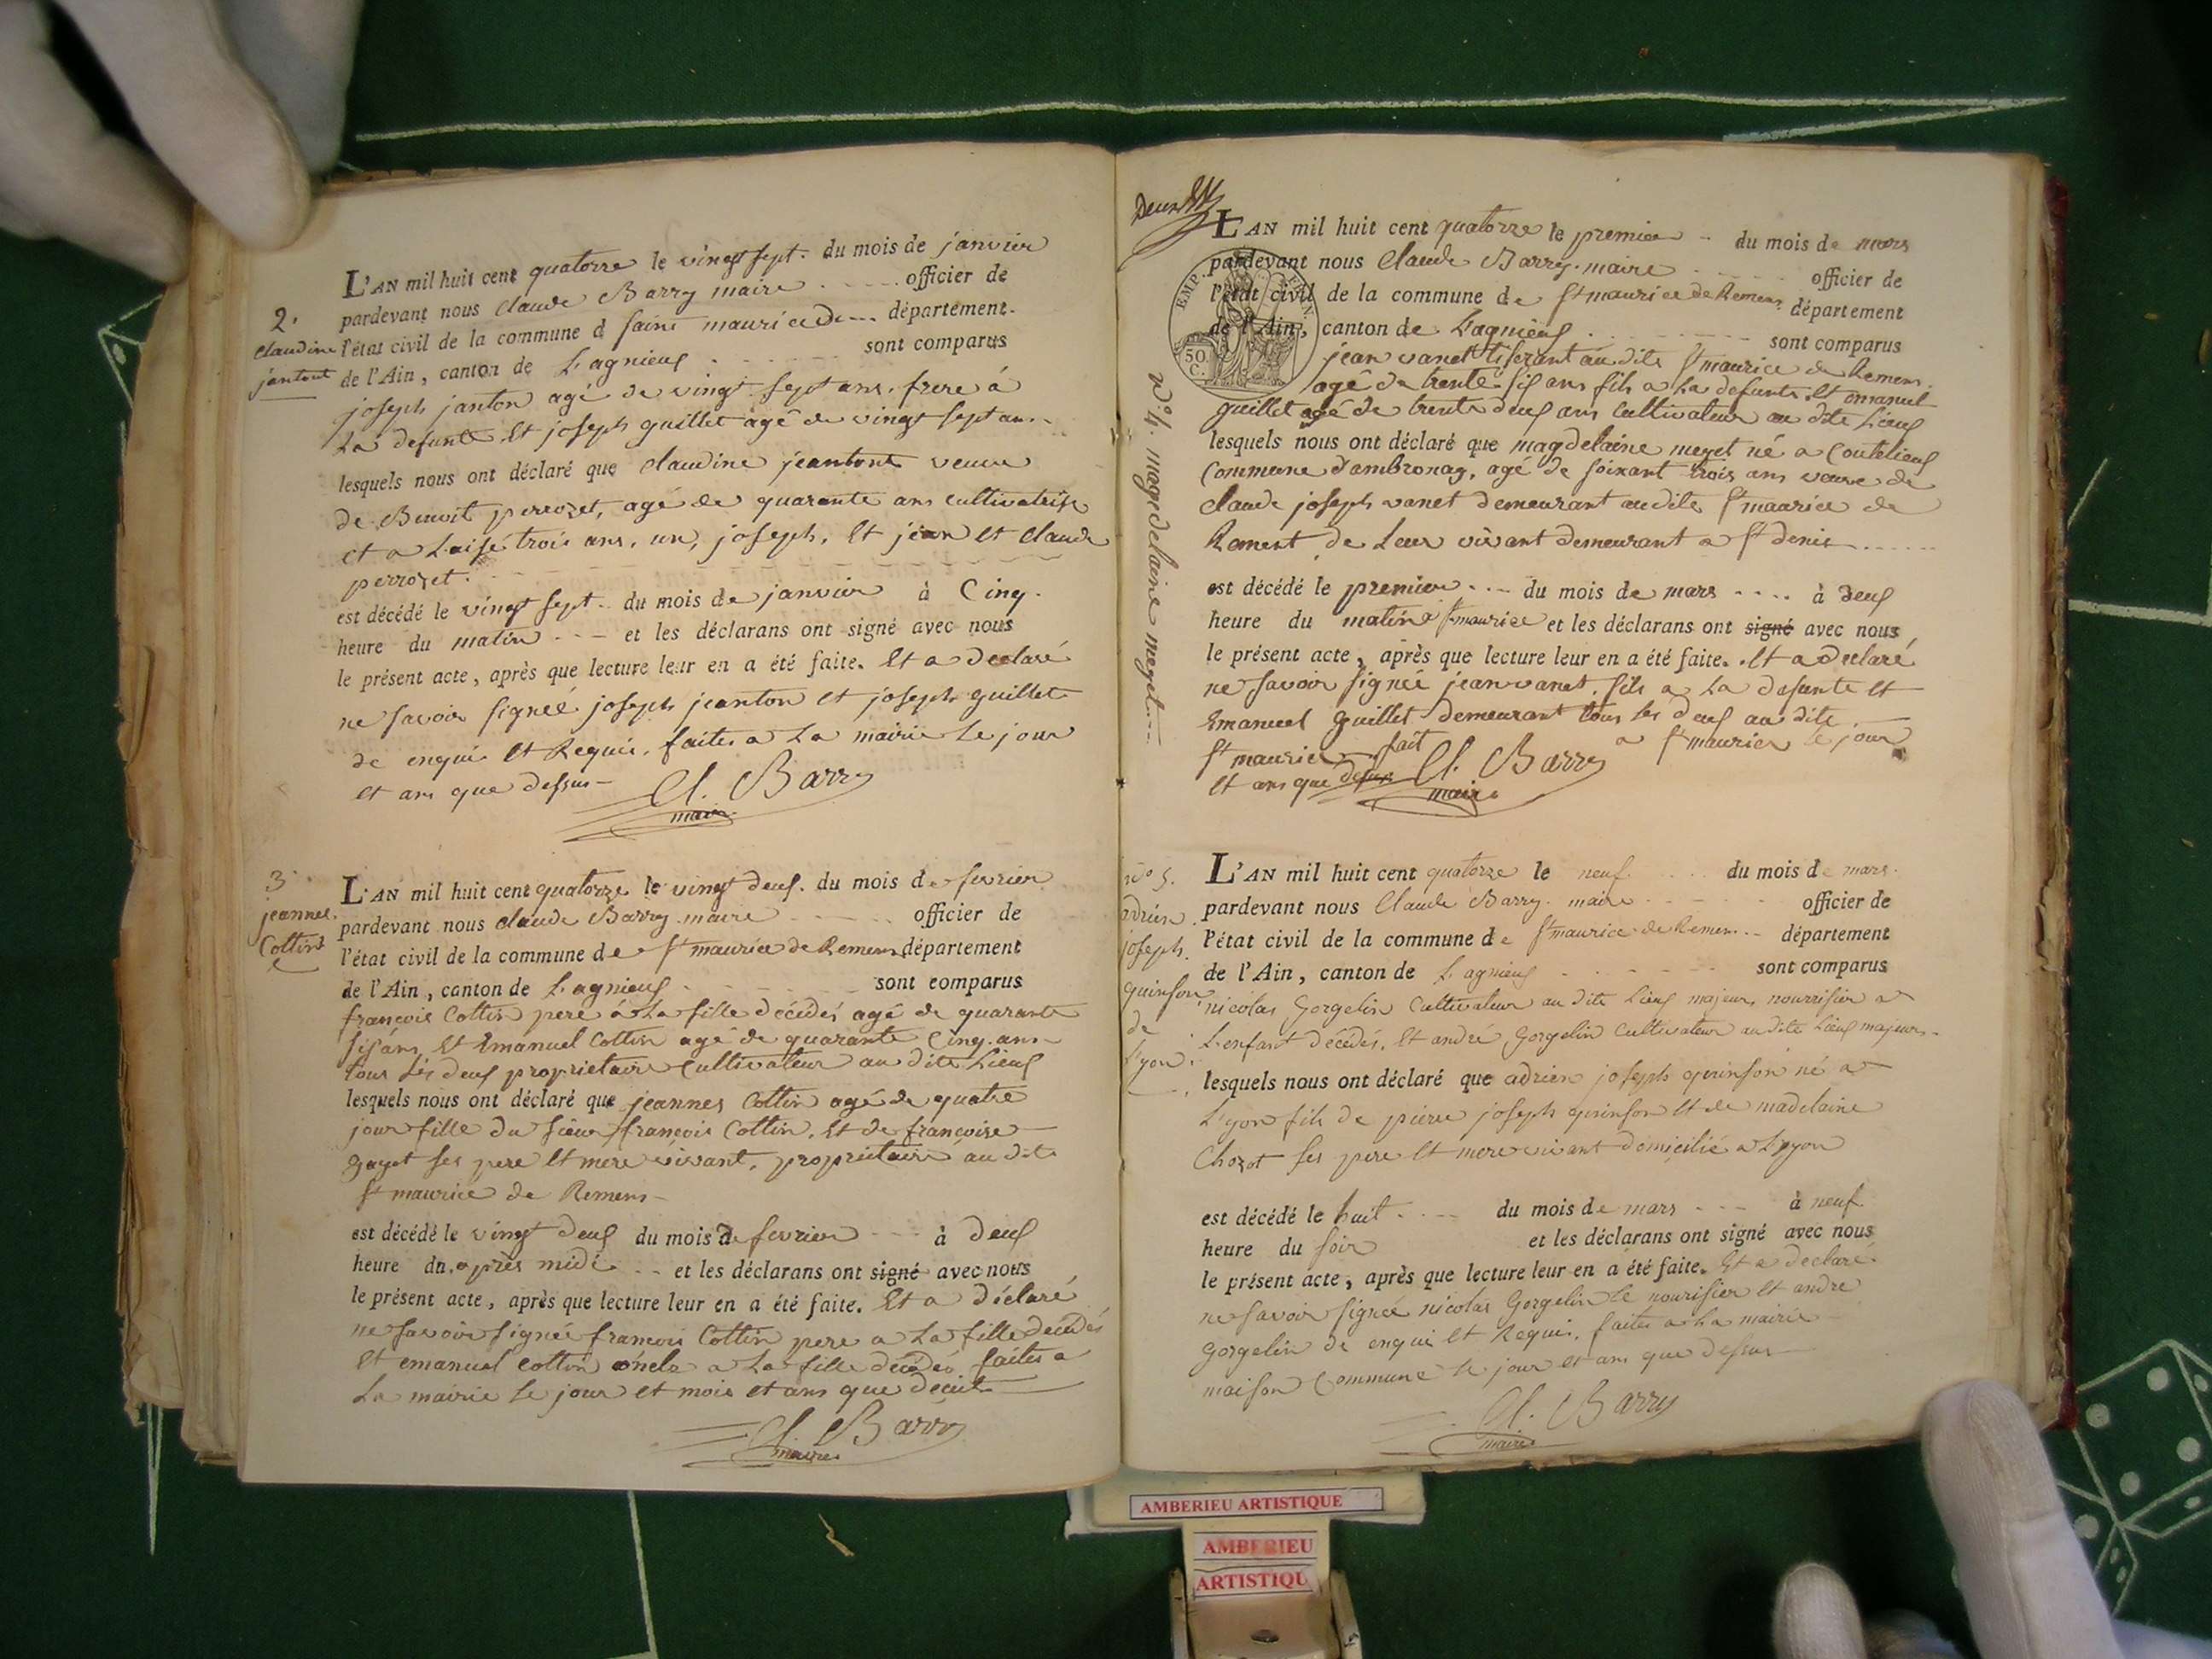 2.
claudine
jantont
L'AN mil huit cent quatorze le vingt sept. du mois de janvier
pardevant nous claude Barry maire officier de
l'état civil de la commune d saint maurice de département
de l'Ain, canton de Lagnieux sont comparus
joseph janton agé de vingt sept ans, frere à
La defunte et joseph guillet agé de vingt sept ans
lesquels nous ont déclaré que claudine jeantont veuve
de Benoit perrozet, agé de quarante ans cultivatrise
et a Laisé trois ans, un, joseph, Et jean et claude
perrozet.
est décédé le vingt sept du mois de janvier à Cinq
heure du matin et les déclarans ont signé avec nous
le présent acte, après que lecture leur en a été faite. Et a declaré
ne savoir signeé joseph jeanton et joseph guillet
de enquis Et Requis, faites a La mairie Le jour
et ans que dessus
Cl. Barry
maire
3
jeannes
Cottint
L'AN mil huit cent quatorze le vingt deux. du mois de fevrier
pardevant nous claude Barry maire officier de
l'état civil de la commune de St maurice de Remens département
de l'Ain, canton de Lagnieux sont comparus
francois Cottin pere à La fille décédés agé de quarante
sis ans Et Emanuel Cottin agé de quarante Cinq ans
tous Les deux proprietaire Cultivateur au dite Lieux
lesquels nous ont déclaré que jeannes Cottin agé de quatre
jour fille du sieur francois Cottin, Et de francoise
gayet ses pere Et mere vivant, propriétaire au dit
St maurice de Remens
est décédé le vingt deux du mois de fevrier à deux
heure du après midi et les déclarans ont signé avec nous
le présent acte, après que lecture leur en a été faite. Et a déclaré
ne savoir signée francois Cottin pere a La fille décédés
Et emanuel cottin oncle a La fille décédés faites a
La mairie Le jour et mois et ans que decit
Cl. Barry
maire
N° 4. magdelaine meget
EMP. FRAN.
50 C.
L'AN mil huit cent quatorze le premier du mois de mars
pardevant nous Claude Barry maire officier de
l'état civil de la commune de St maurice de Remens département
de l'Ain, canton de Lagnieux sont comparus
jean vanet tiserant au dite St maurice de Remens
agé de trente sis ans fils a La defunte, Et emanuel
guillet agé de trente deux ans Cultivateur au dite Lieux
lesquels nous ont déclaré que magdelaine meget né a Coutelieux
Commune d'ambronay, agé de soixant trois ans veuve de
claude joseph vanet demeurant au dite St maurice de
Rement de Leur vivant demeurant a St denis
est décédé le premier du mois de mars à deux
heure du matin St maurice et les déclarans ont signé avec nous
le présent acte, après que lecture leur en a été faite. Et a declaré
ne savoir signeé jean vanet, fils a La defunte et
Emanuel guillet demeurant tous les deux au dite
St maurice fait a St maurice le jour
Et ans que dessus Cl. Barry
maire
N° 5.
adrien
joseph
quinson
de
Lyon
L'AN mil huit cent quatorze le neuf du mois de mars
pardevant nous Claude Barry maire officier de
l'état civil de la commune de St maurice de Remens département
de l'Ain, canton de Lagnieux sont comparus
nicolas Gorgelin Cultivateur au dite Lieux majeurs nourrisier a
L'enfant décédés, Et andré Gorgelin Cultivateur au dite Lieux majeurs
lesquels nous ont déclaré que adrien joseph quinson né a
Lyon fils de pierre joseph quinson Et de madelaine
Chozot ses pere Et mere vivant domicilié a Lyon
est décédé le huit du mois de mars à neuf
heure du soir et les déclarans ont signé avec nous
le présent acte, après que lecture leur en a été faite. Et a declaré
ne savoir signeé nicolas Gorgelin le nourisier et andre
Gorgelin de enqui Et Requis, faites a La mairie
maison Commune le jour et ans que dessus
Cl. Barry
maire
AMBERIEU ARTISTIQUE
AMBERIEU
ARTISTIQU